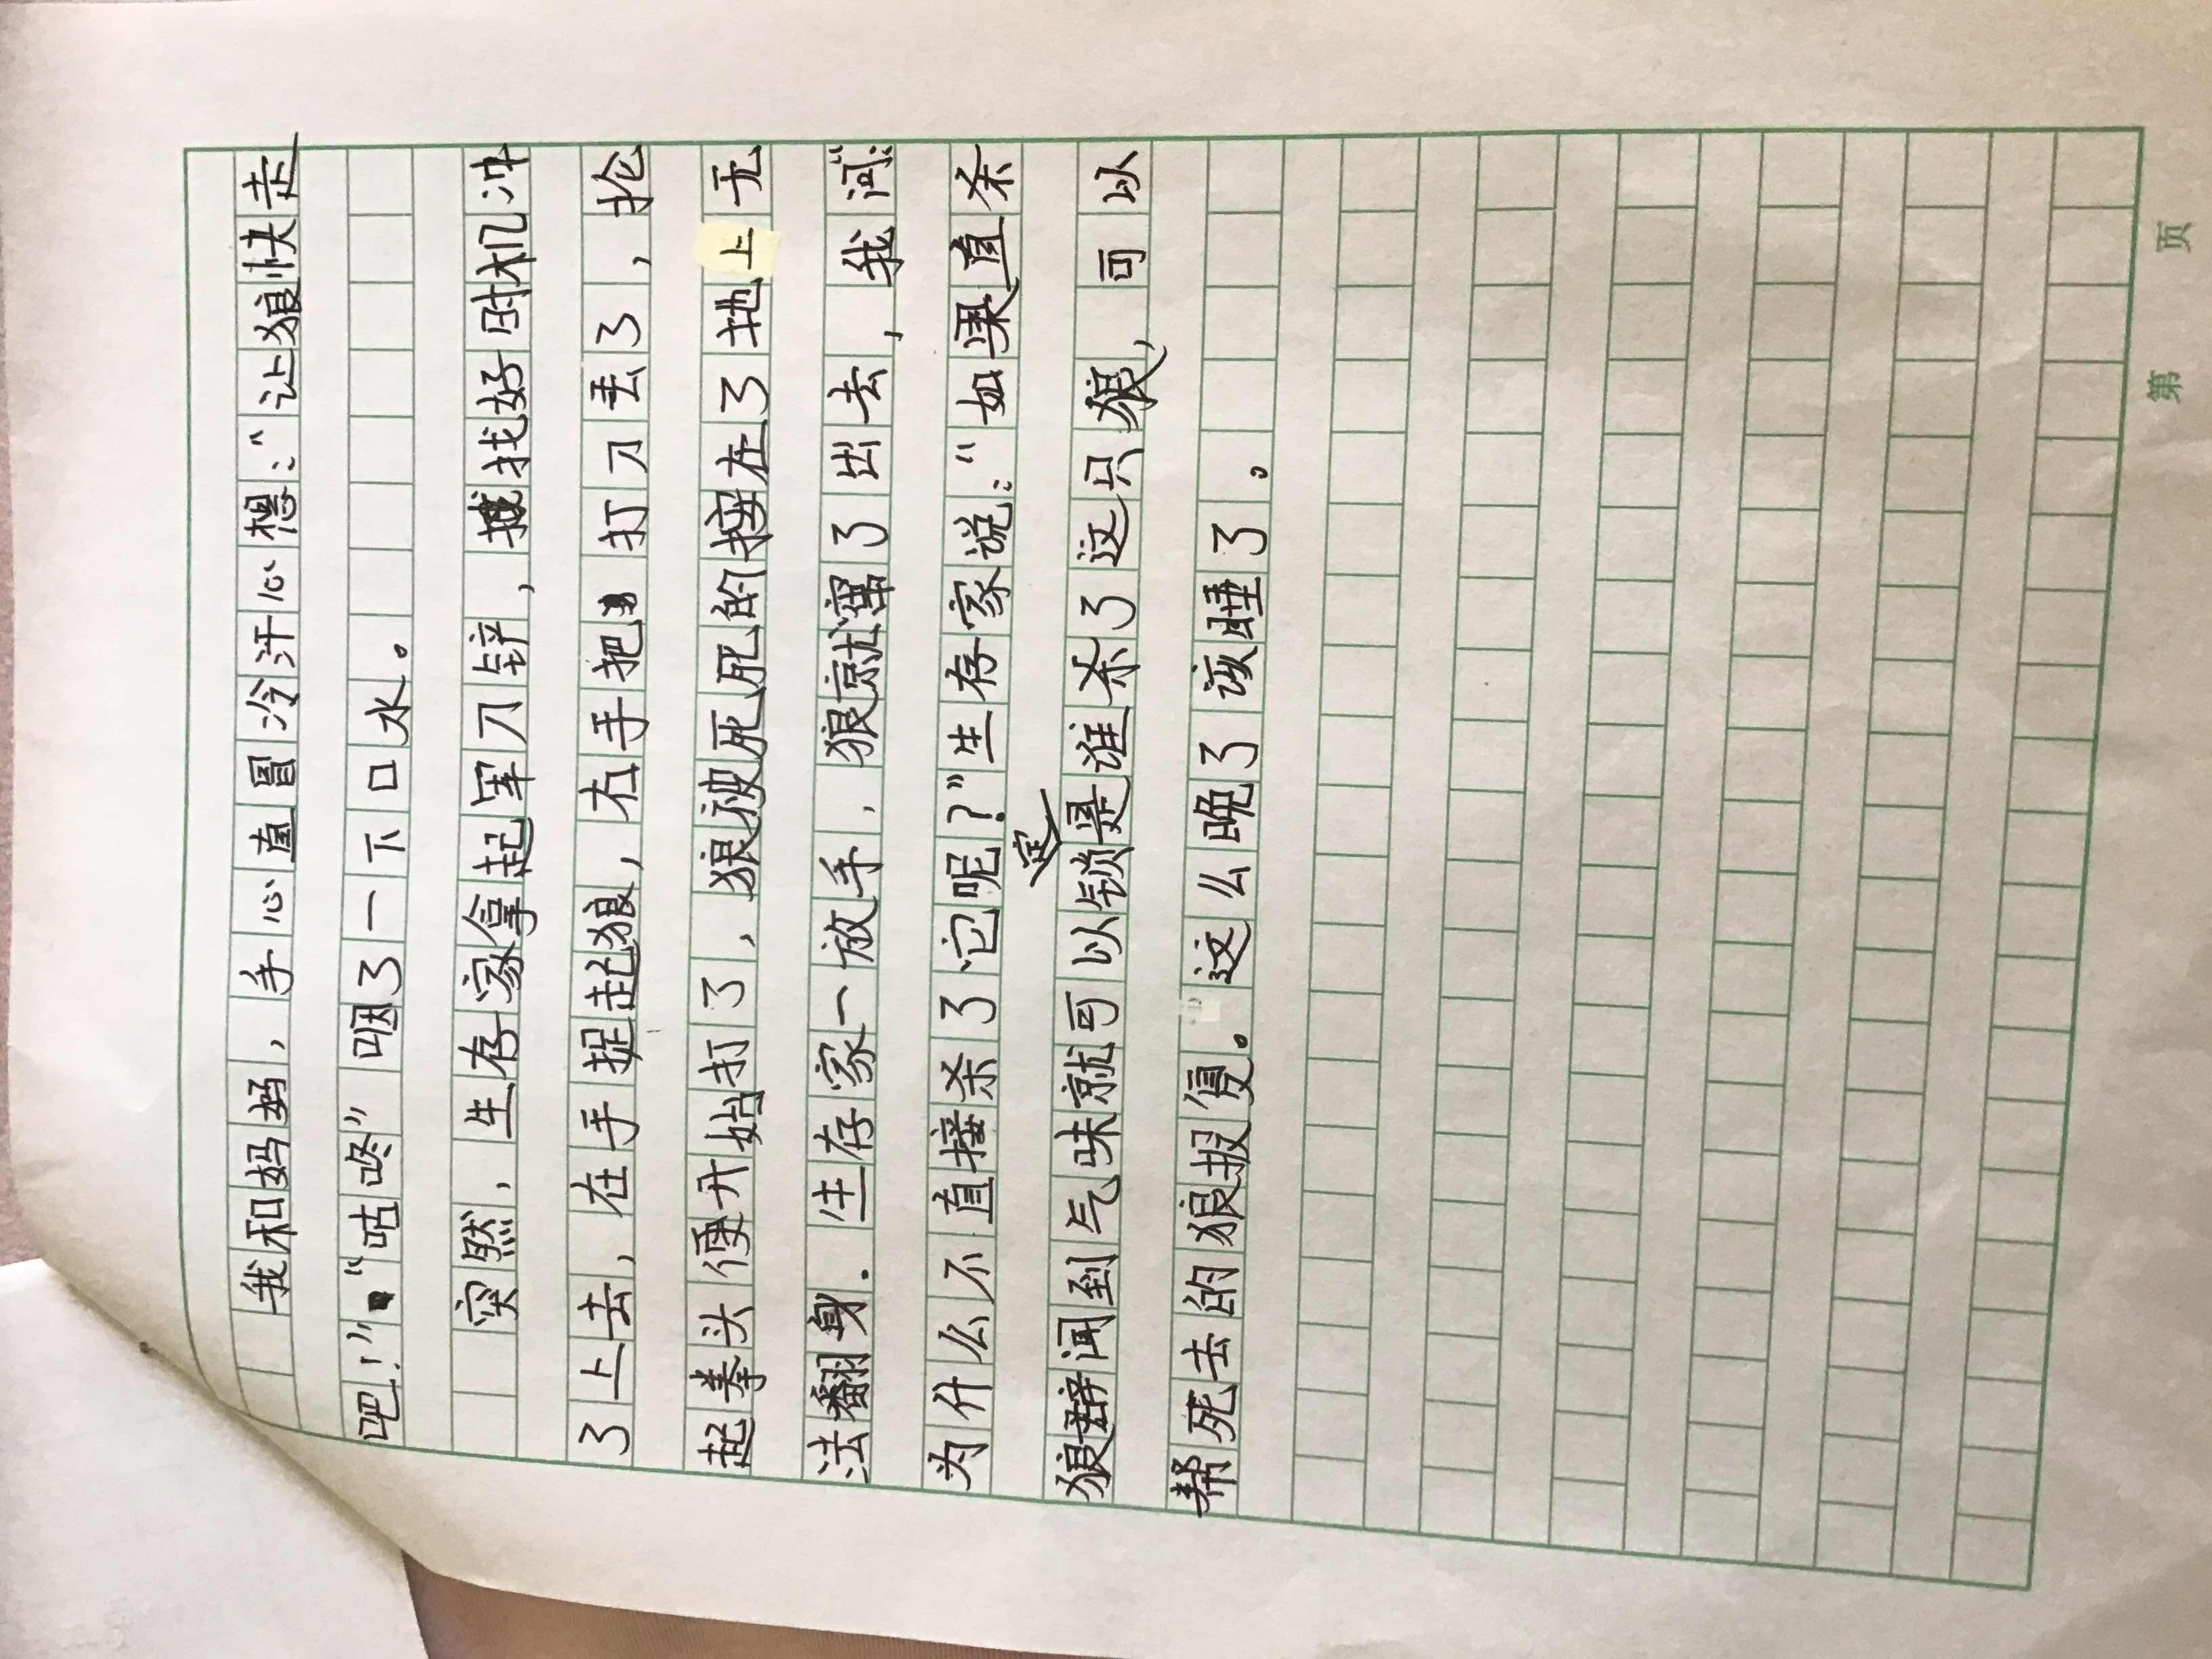 我和妈妈，手心直冒冷汗心想：“让狼快走
吧！”“咕咚”咽了一下口水。
突然，生存家拿起军刀铲，找好时机冲
了上去，在手捉起狼，右手把打刀丢了，抡
起拳头便开始打了，狼被死死的按在了地上无
法翻身．生存家一放手，狼就窜了出去，我问：“
为什么不直接杀了它呢？”生存家说：“如果直杀
狼群闻到气味就可以锁定是谁杀了这只狼，可以
帮死去的狼报复。这么晚了该睡了。
第 页